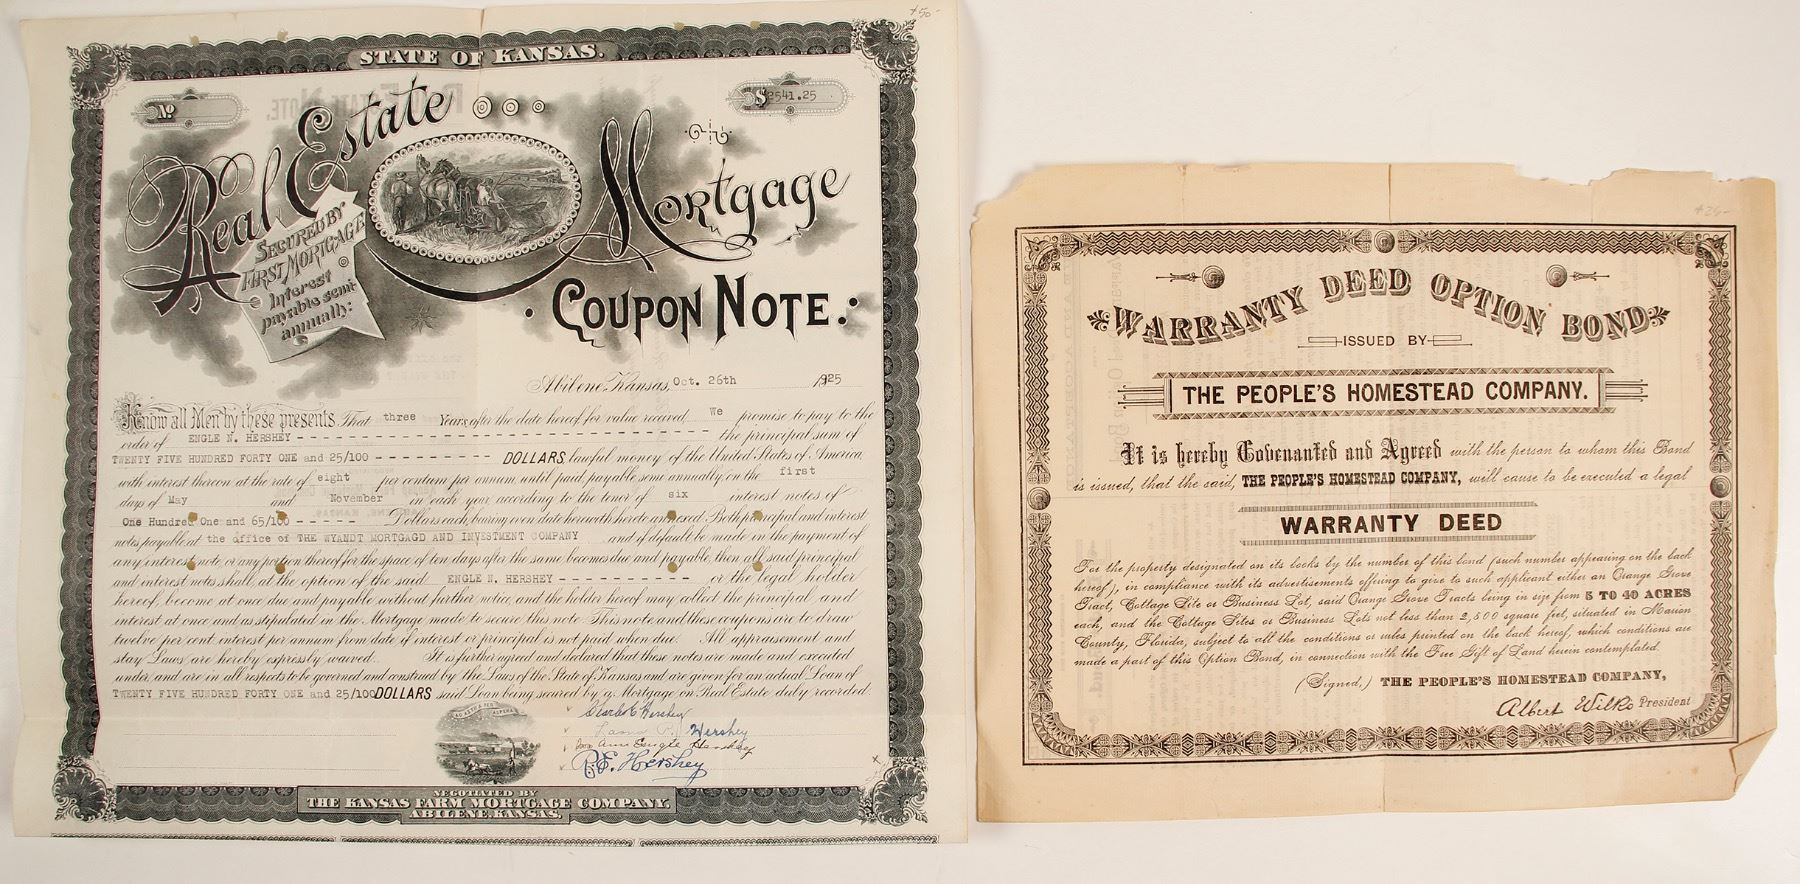 $50-
STATE OF KANSAS.
No
$2541.25
Real Estate Mortgage
SECURED BY
FIRST MORTGAGE
Interest
payable semi-
annually:
COUPON NOTE.
Abilene, Kansas, Oct. 26th 1925
Know all Men by these presents That three Years after the date hereof for value received We promise to pay to the
order of ENGLE N. HERSHEY the principal sum of
TWENTY FIVE HUNDRED FORTY ONE and 25/100 DOLLARS lawful money of the United States of America
with interest thereon at the rate of eight per centum per annum, until paid, payable semi annually, on the first
days of May and November in each year according to the tenor of six interest notes of
One Hundred One and 65/100 Dollars each, bearing even date herewith hereto annexed. Both principal and interest
notes payable at the office of THE WYANDT MORTGAGD AND INVESTMENT COMPANY and if default be made in the payment of
any interest note, or any portion thereof for the space of ten days after the same becomes due and payable, then all said principal
and interest notes shall, at the option of the said ENGLE N. HERSHEY or the legal holder
hereof, become at once due and payable without further notice, and the holder hereof may collect the principal and
interest at once and as stipulated in the Mortgage made to secure this note. This note and these coupons are to draw
twelve per cent. interest per annum from date if interest or principal is not paid when due. All appraisement and
stay Laws are hereby expressly waived. It is further agreed and declared that these notes are made and executed
under, and are in all respects to be governed and construed by the Laws of the State of Kansas and are given for an actual Loan of
TWENTY FIVE HUNDRED FORTY ONE and 25/100 DOLLARS said Loan being secured by a Mortgage on Real Estate duly recorded.
AD ASTRA PER ASPERA
Charles E Hershey
Hershey
Engle Hershey
Hershey
NEGOTIATED BY
THE KANSAS FARM MORTGAGE COMPANY,
ABILENE, KANSAS.
WARRANTY DEED OPTION BOND
ISSUED BY
THE PEOPLE'S HOMESTEAD COMPANY.
It is hereby Covenanted and Agreed with the person to whom this Bond
is issued, that the said, THE PEOPLE'S HOMESTEAD COMPANY, will cause to be executed a legal
WARRANTY DEED
For the property designated on its books by the number of this bond (such number appearing on the back
hereof), in compliance with its advertisements offering to give to such applicant either an Orange Grove
Tract, Cottage Site or Business Lot, said Orange Grove Tracts being in size from 5 TO 40 ACRES
each, and the Cottage Sites or Business Lots not less than 2,500 square feet, situated in Marion
County, Florida, subject to all the conditions or rules printed on the back hereof, which conditions are
made a part of this Option Bond, in connection with the Free Gift of Land herein contemplated.
(Signed,) THE PEOPLE'S HOMESTEAD COMPANY,
Albert Wilks President